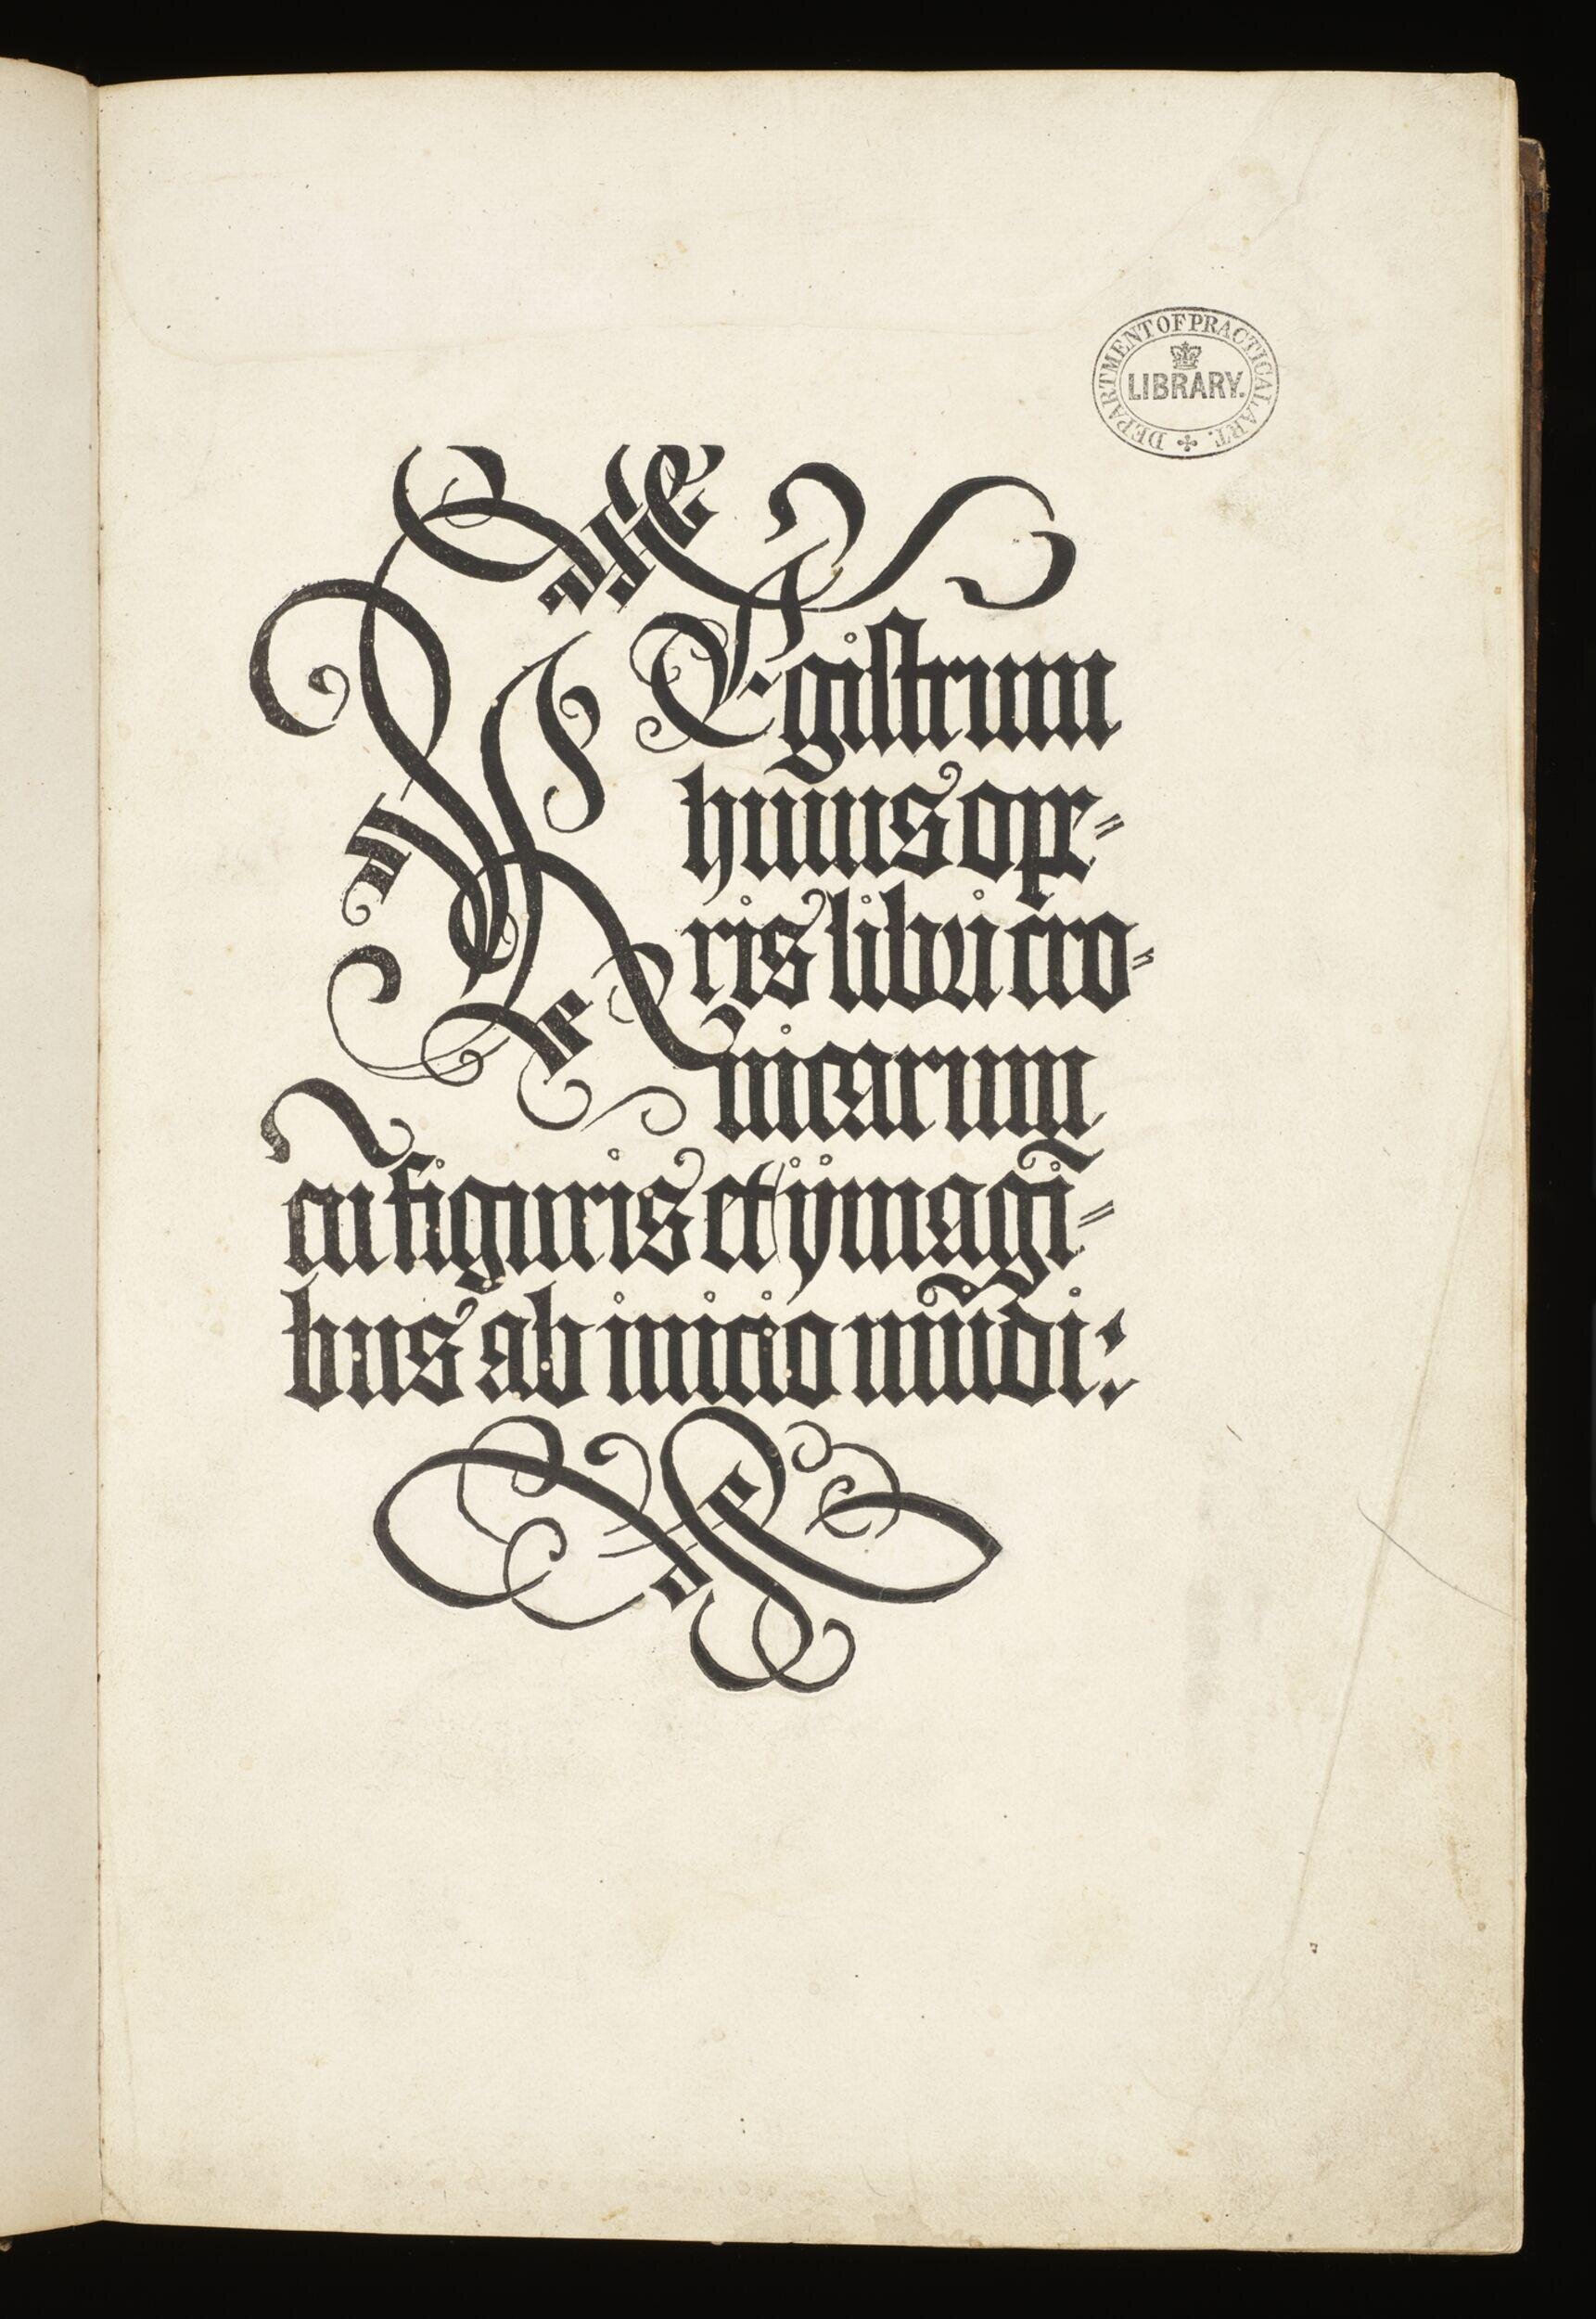 DEPARTMENT OF PRACTICAL ART.
LIBRARY.
REgistrum
huius ope=
ris libri cro=
nicarum
cū figuris et ymagī=
bus ab inicio mūdi: